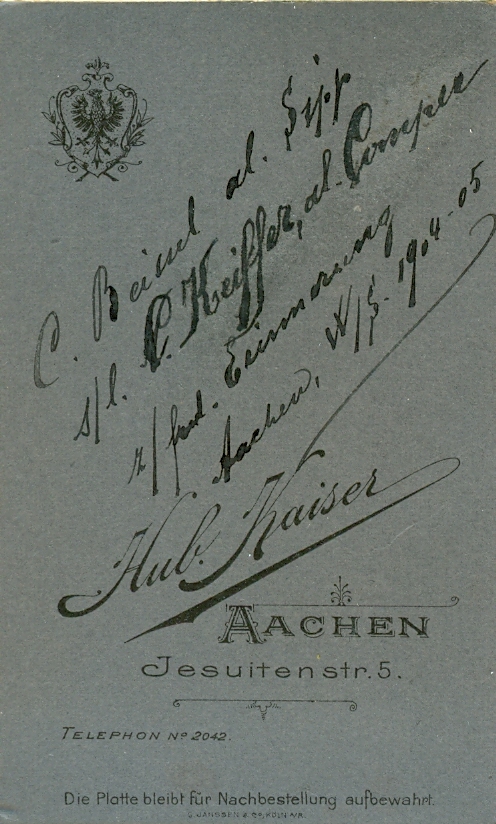 C. Beisel al. Sipp
s/l. C. Keiffer, al. Comper
z/frd. Erinnerung
Aachen, W/S. 1904-05
Hub. Kaiser
AACHEN
Jesuitenstr. 5.
TELEPHON Nº 2042.
Die Platte bleibt für Nachbestellung aufbewahrt.